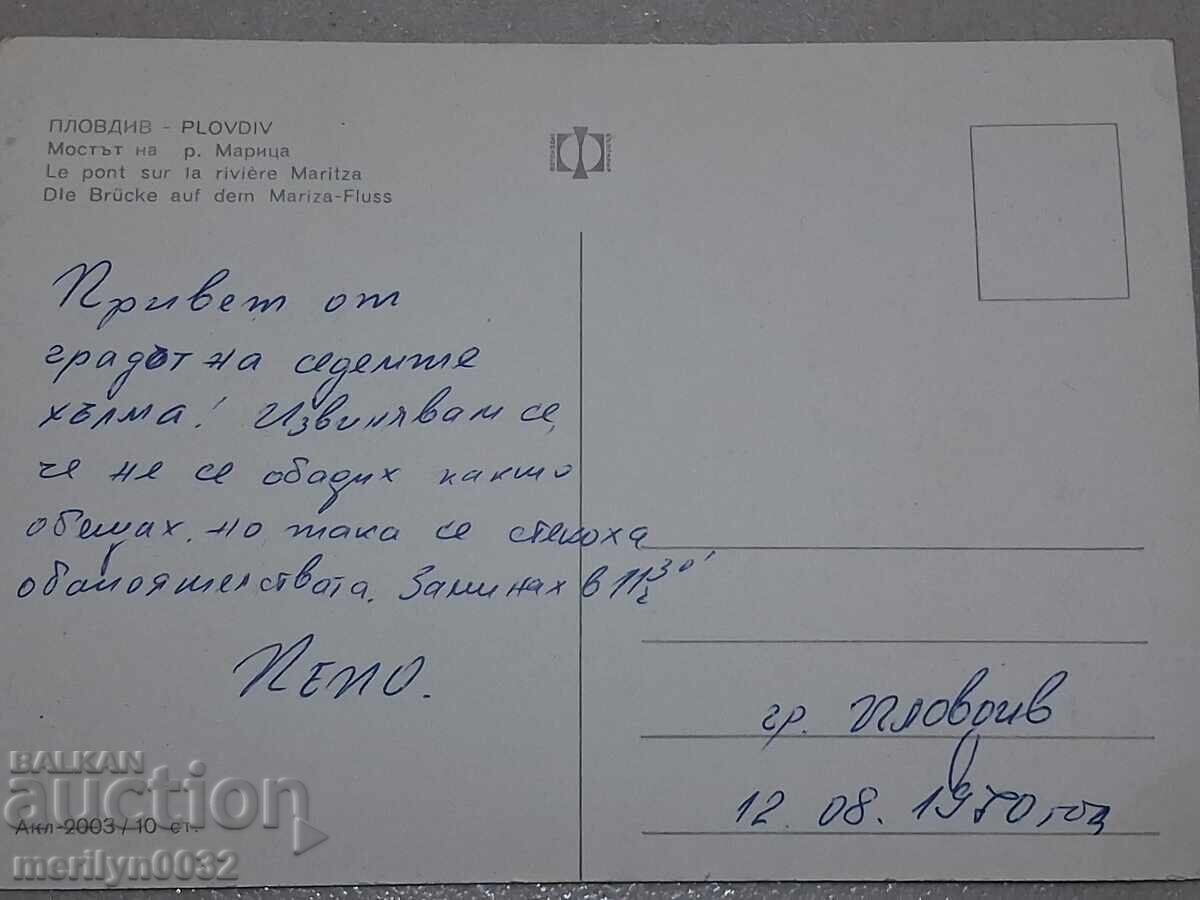 ПЛОВДИВ - PLOVDIV
Мостът на р. Марица
Le pont sur la rivière Maritza
Die Brücke auf dem Mariza-Fluss
Привет от
градът на седемте
хълма! Извинявам се,
че не се обадих както
обещах, но така се стекоха
обстоятелствата. Заминах в 11 30'
ч
Пепо.
гр. Пловдив
12. 08. 1970 год
Акл-2003/10 ст.
BALKAN
auction
merilyn0032